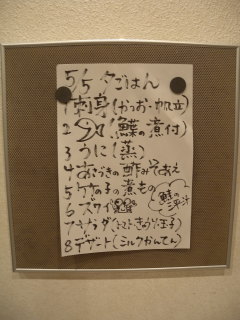 5/5 夕ごはん
1 刺身(かつお・帆立)
2 (鰈の煮付)
3 うに(蒸)
4 あさづきの酢みそあえ
5 竹の子の煮もの
6 ズワイ
7 サラダ(トマト・きゅうり・玉子)
8 デザート(ミルクかんてん)
鱈の三平汁